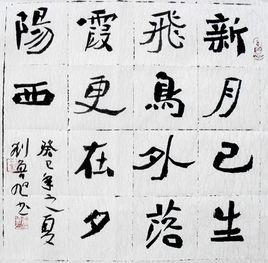 新月已生
飛鳥外落
霞更在夕
陽西
癸巳年之夏